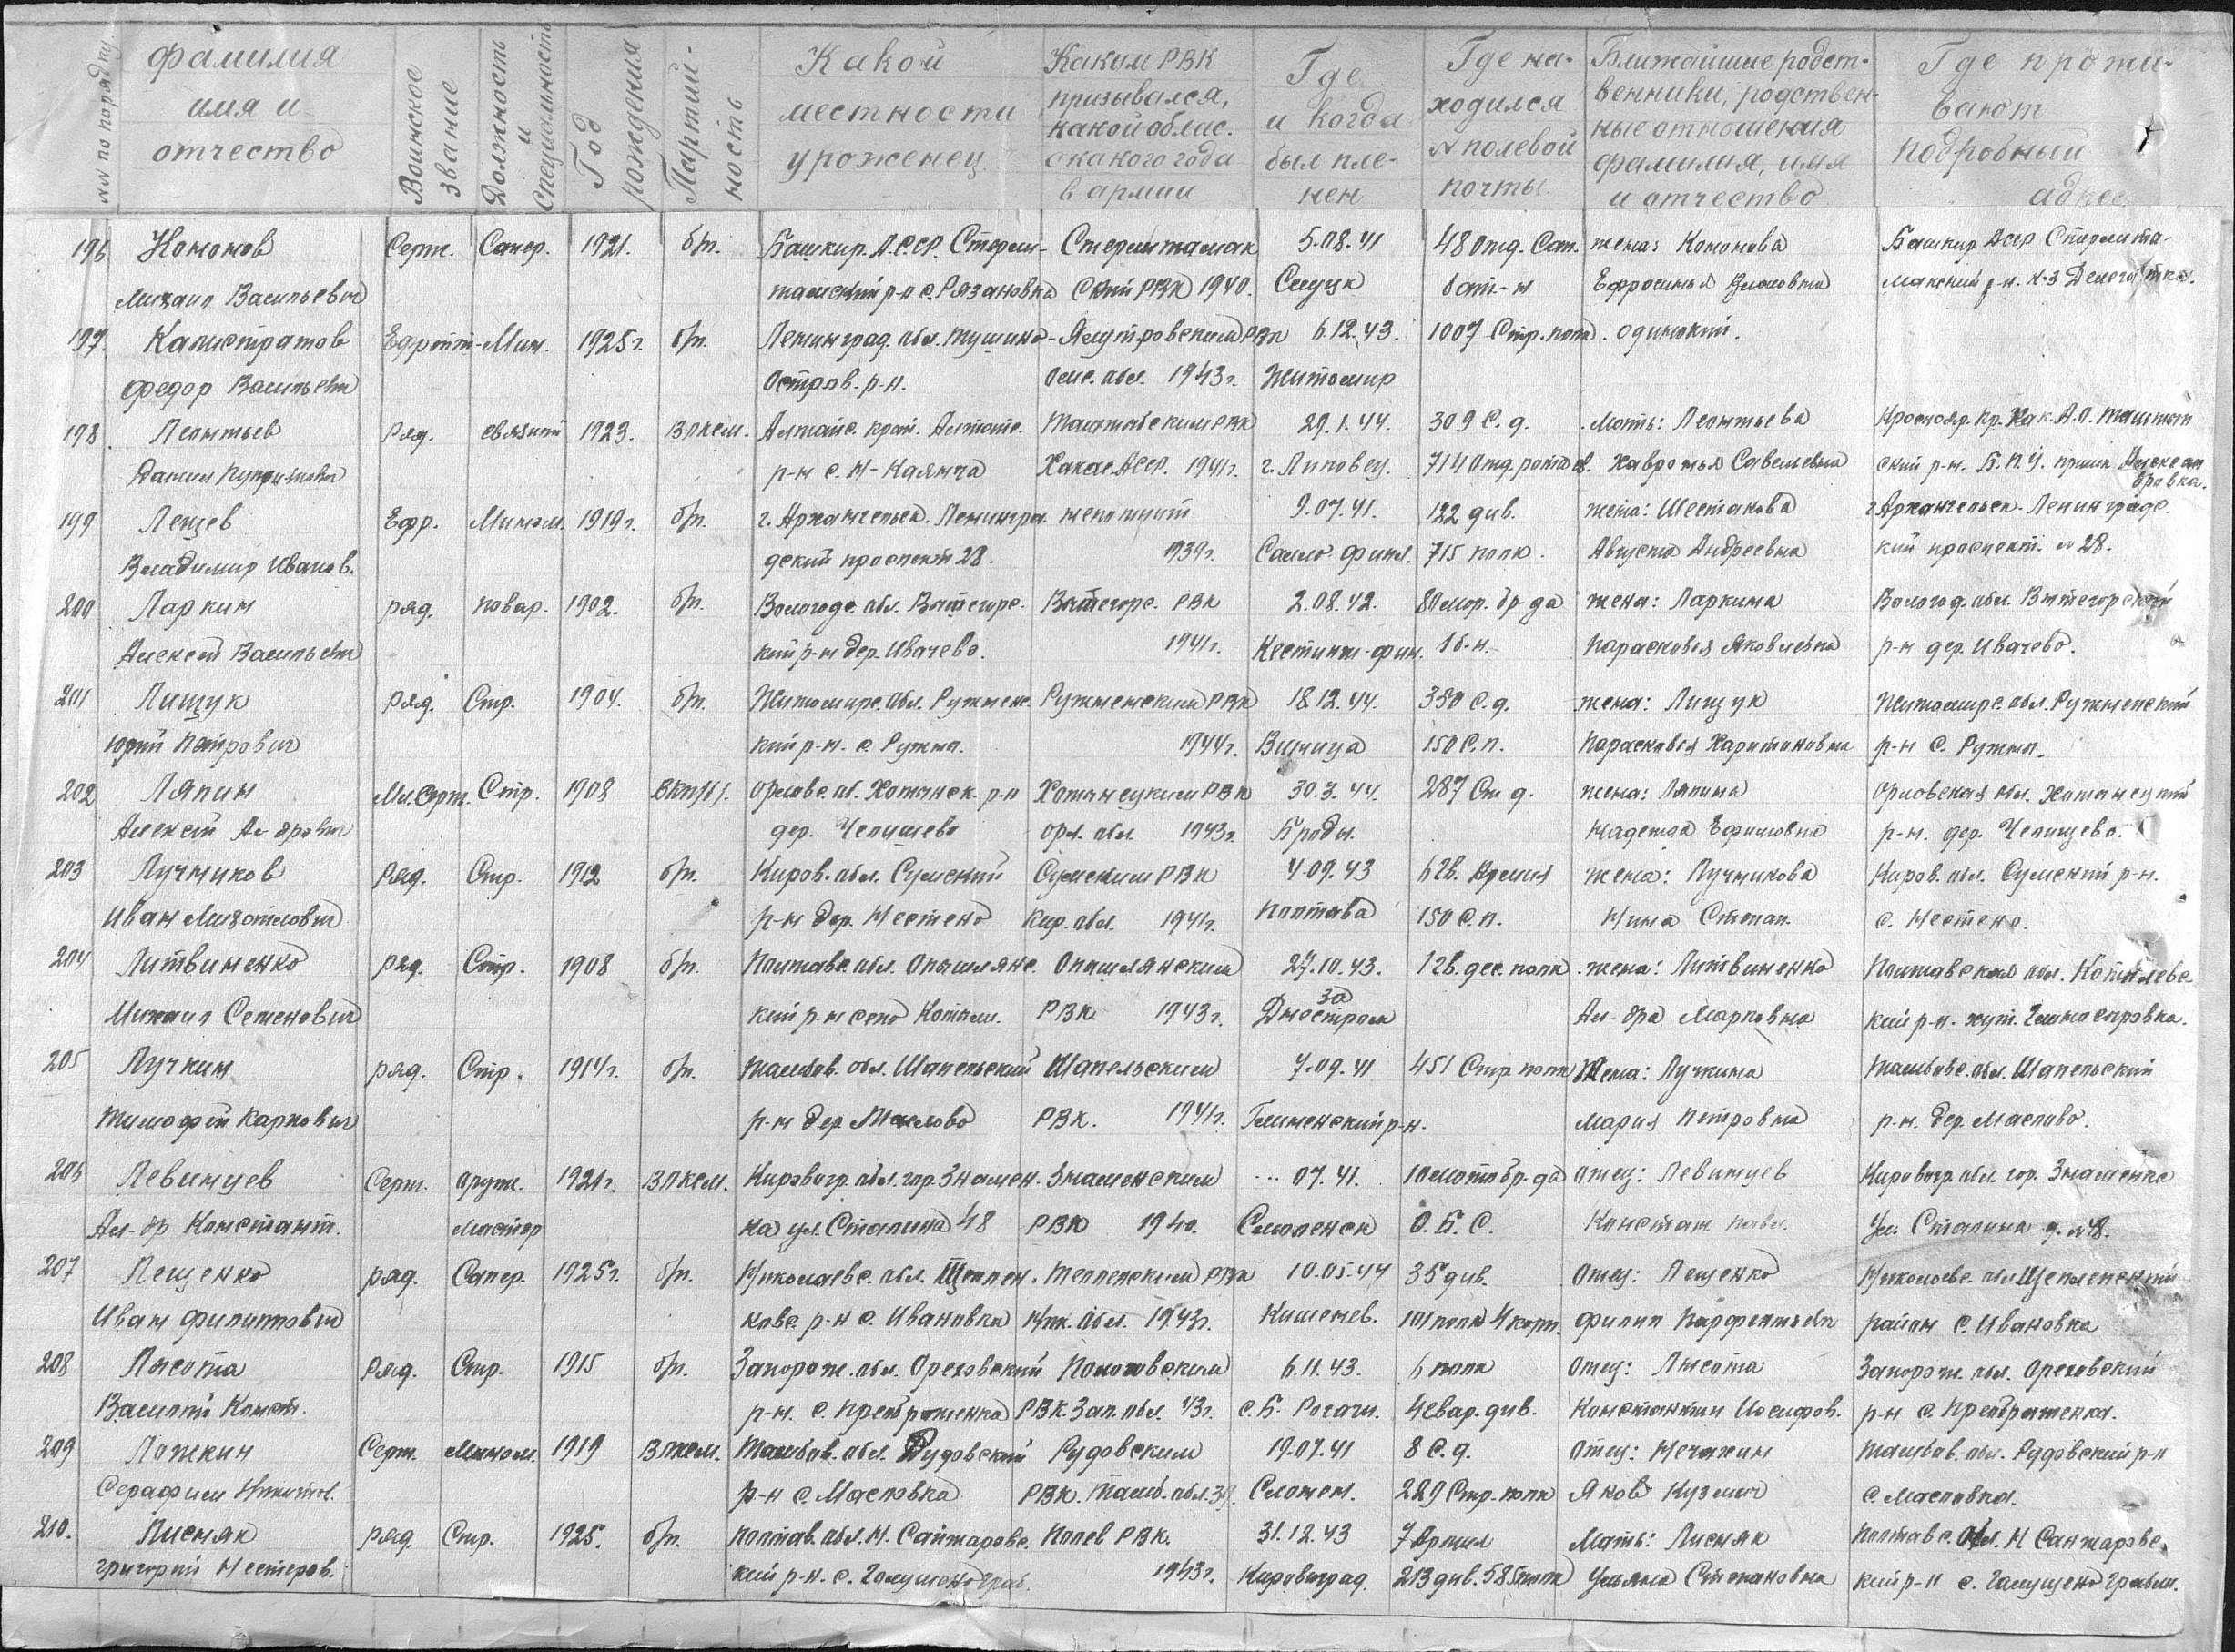 №№ по порядку
Фамилия имя и отчество
Воинское звание
Должность и специальность
Год рождения
Партийность
Какой местности уроженец
Каким РВК призывался, какой облас. с какого года в армии
Где и когда был пленен
Где находился № полевой почты
Ближайшие родственники, родственные отношения фамилия, имя и отчество
Где проживают подробный адрес
196 Кононов Серж. Сапер. 1921. б/п. Башкир. А.С.СР. Стерли- Стерлитамак 5.08.41 48 отд. Сап. жена: Кононова Башкир АССР Стерлита-
Михаил Васильевич тамский р-н с. Рязановка ский РВК 1940. Слуцк бат-н Ефросинья макский р-н. к-з
197. Калистратов Ефрейт- Мин. 1925 г. б/п. Ленинград. обл. Ялутровским РВК 6.12.43. 1007 Стр. полк. одинокий.
Федор Васильевич Остров. р-н. Омс. обл. 1943 г. Житомир
198. Леонтьев Ряд. связист 1923. ВЛКСМ. Алтайс. край. РВК 29.1.44. 309 С. д. Мать: Леонтьева Краснояр. Кр. Хак. А.О.
Данил р-н с. Н-Каянча Хакас АССР. 1941 г. г. Липовец. 714 отд. Хавронья Савельевна ский р-н. Б.П.У.
199 Лещев Ефр. Мином. 1919 г. б/п. г. Архангельск. Ленингра- 9.07.41. 122 див. жена: Шестакова г. Архангельск. Ленинградс.
Владимир Иванов. дский проспект 28. 1939 г. Салло финл. 715 полк. Августа Андреевна кий проспект. № 28.
200 Ларкин ряд. повар. 1902. б/п. Вологодс. обл. Вытегорс. Вытегорс. РВК 2.08.42. 80 мор. бр-да жена: Ларкина Вологод. обл. Вытегорский
Алексей Васильевич кий р-н дер. Ивачево. 1941 г. Кестинг-фин. 1 б-н. Парасковья Яковлевна р-н дер. Ивачево.
201 Лищук ряд. Стр. 1904. б/п. Житомирс. обл. Ружненс. Ружненским РВК 18.12.44. 350 С. д. жена: Лищук Житомирс. обл. Ружненский
Юрий Петрович кий р-н. с. Ружин. 1944 г. Виница 150 С. п. Парасковья Харитоновна р-н с. Ружин.
202 Ляпин Мл. Серж. Стр. 1908 ВКП/б/. Орловс. об. Хотынск. р-н Хотынецким РВК 30.3.44. 287 Ст д. жена: Ляпина Орловская обл. Хотынецкий
Алексей Ал-дрович дер. Челищево орл. обл. 1943 г. Броды. Надежда Ефимовна р-н. дер. Челищево.
203 Лучников Ряд. Стр. 1912 б/п. Киров. обл. Сунский Сунским РВК 4.09.43 6 гв. Армия жена: Лучникова Киров. обл. Сунский р-н.
Иван Михайлович р-н дер. Нестено Кир. обл. 1941 г. Полтава 150 С. п. Нина Степан. с. Нестено.
204 Литвиненко ряд. Стр. 1908 б/п. Полтавс. обл. Опошлянс. Опошлянским 27.10.43. 1 гв. дес. полк. жена: Литвиненко Полтавская обл. Котелевс
Михаил Семенович кий р-н село Котели. РВК 1943 г. за Днестром Ал-дра Марковна кий р-н. хут.
205 Лучкин ряд. Стр. 1914 г. б/п. Тамбов. обл. Шапельский Шапельским 7.09.41 451 Стр. полк Жена: Лучкина Тамбовс. обл. Шапельский
Тимофей Карпович р-н дер Маслово РВК. 1941 г. р-н. Мария Петровна р-н. дер. Маслово.
206 Левинцев Серж. оруж. 1921 г. ВЛКСМ. Кировогр. обл. гор. Знамен- Знаменским ... 07.41. 10 мото бр-да отец: Левинцев Кировогр. обл. гор. Знаменка
Ал-др Констант. мастер ка ул. Сталина 48 РВК 1940. Смоленск О.Б.С. Констан. павл. Ул. Сталина д. № 48.
207 Лещенко ряд. Сапер. 1925 г. б/п. Николаевс. обл. РВК 10.05.44 35 див. Отец: Лещенко Николаевс. обл.
Иван Филиппович ковс. р-н с. Ивановка Ник. обл. 1943 г. Кишенев. 101 полк 4 корп. Филип Парфентьевич район с. Ивановка
208 Лысота ряд. Стр. 1915 б/п. Запорож. обл. Ореховский Пологовским 6.11.43. 6 полк отец: Лысота Запорож. обл. Ореховский
Василий Конст. р-н. с. Преображенка РВК. Зап. обл. 43 г. с. Б. Рогачи. 4 кавр. див. Константин Иосифов. р-н с. Преображенка.
209 Ложкин Серж. мином. 1919 ВЛКСМ. Тамбов. обл. Рудовский Рудовским 19.07.41 8 С. д. отец: Нечакин Тамбов. обл. Рудовский р-н
Серафим р-н с. Масловка РВК. Тамб. обл. 39. Смолен. 229 Стр. полк Яков Кузмич с. Масловка.
210. Лисняк ряд. Стр. 1925. б/п. Полтав. обл. Н. Санжаровс. РВК. 31.12.43 7 Армия Мать: Лисняк Полтавс. обл. Н Санжаровс.
Григорий Нестеров. кий р-н. с. 1943 г. Кировоград. 213 див. 585 полк Ульяна Степановна кий р-н с.